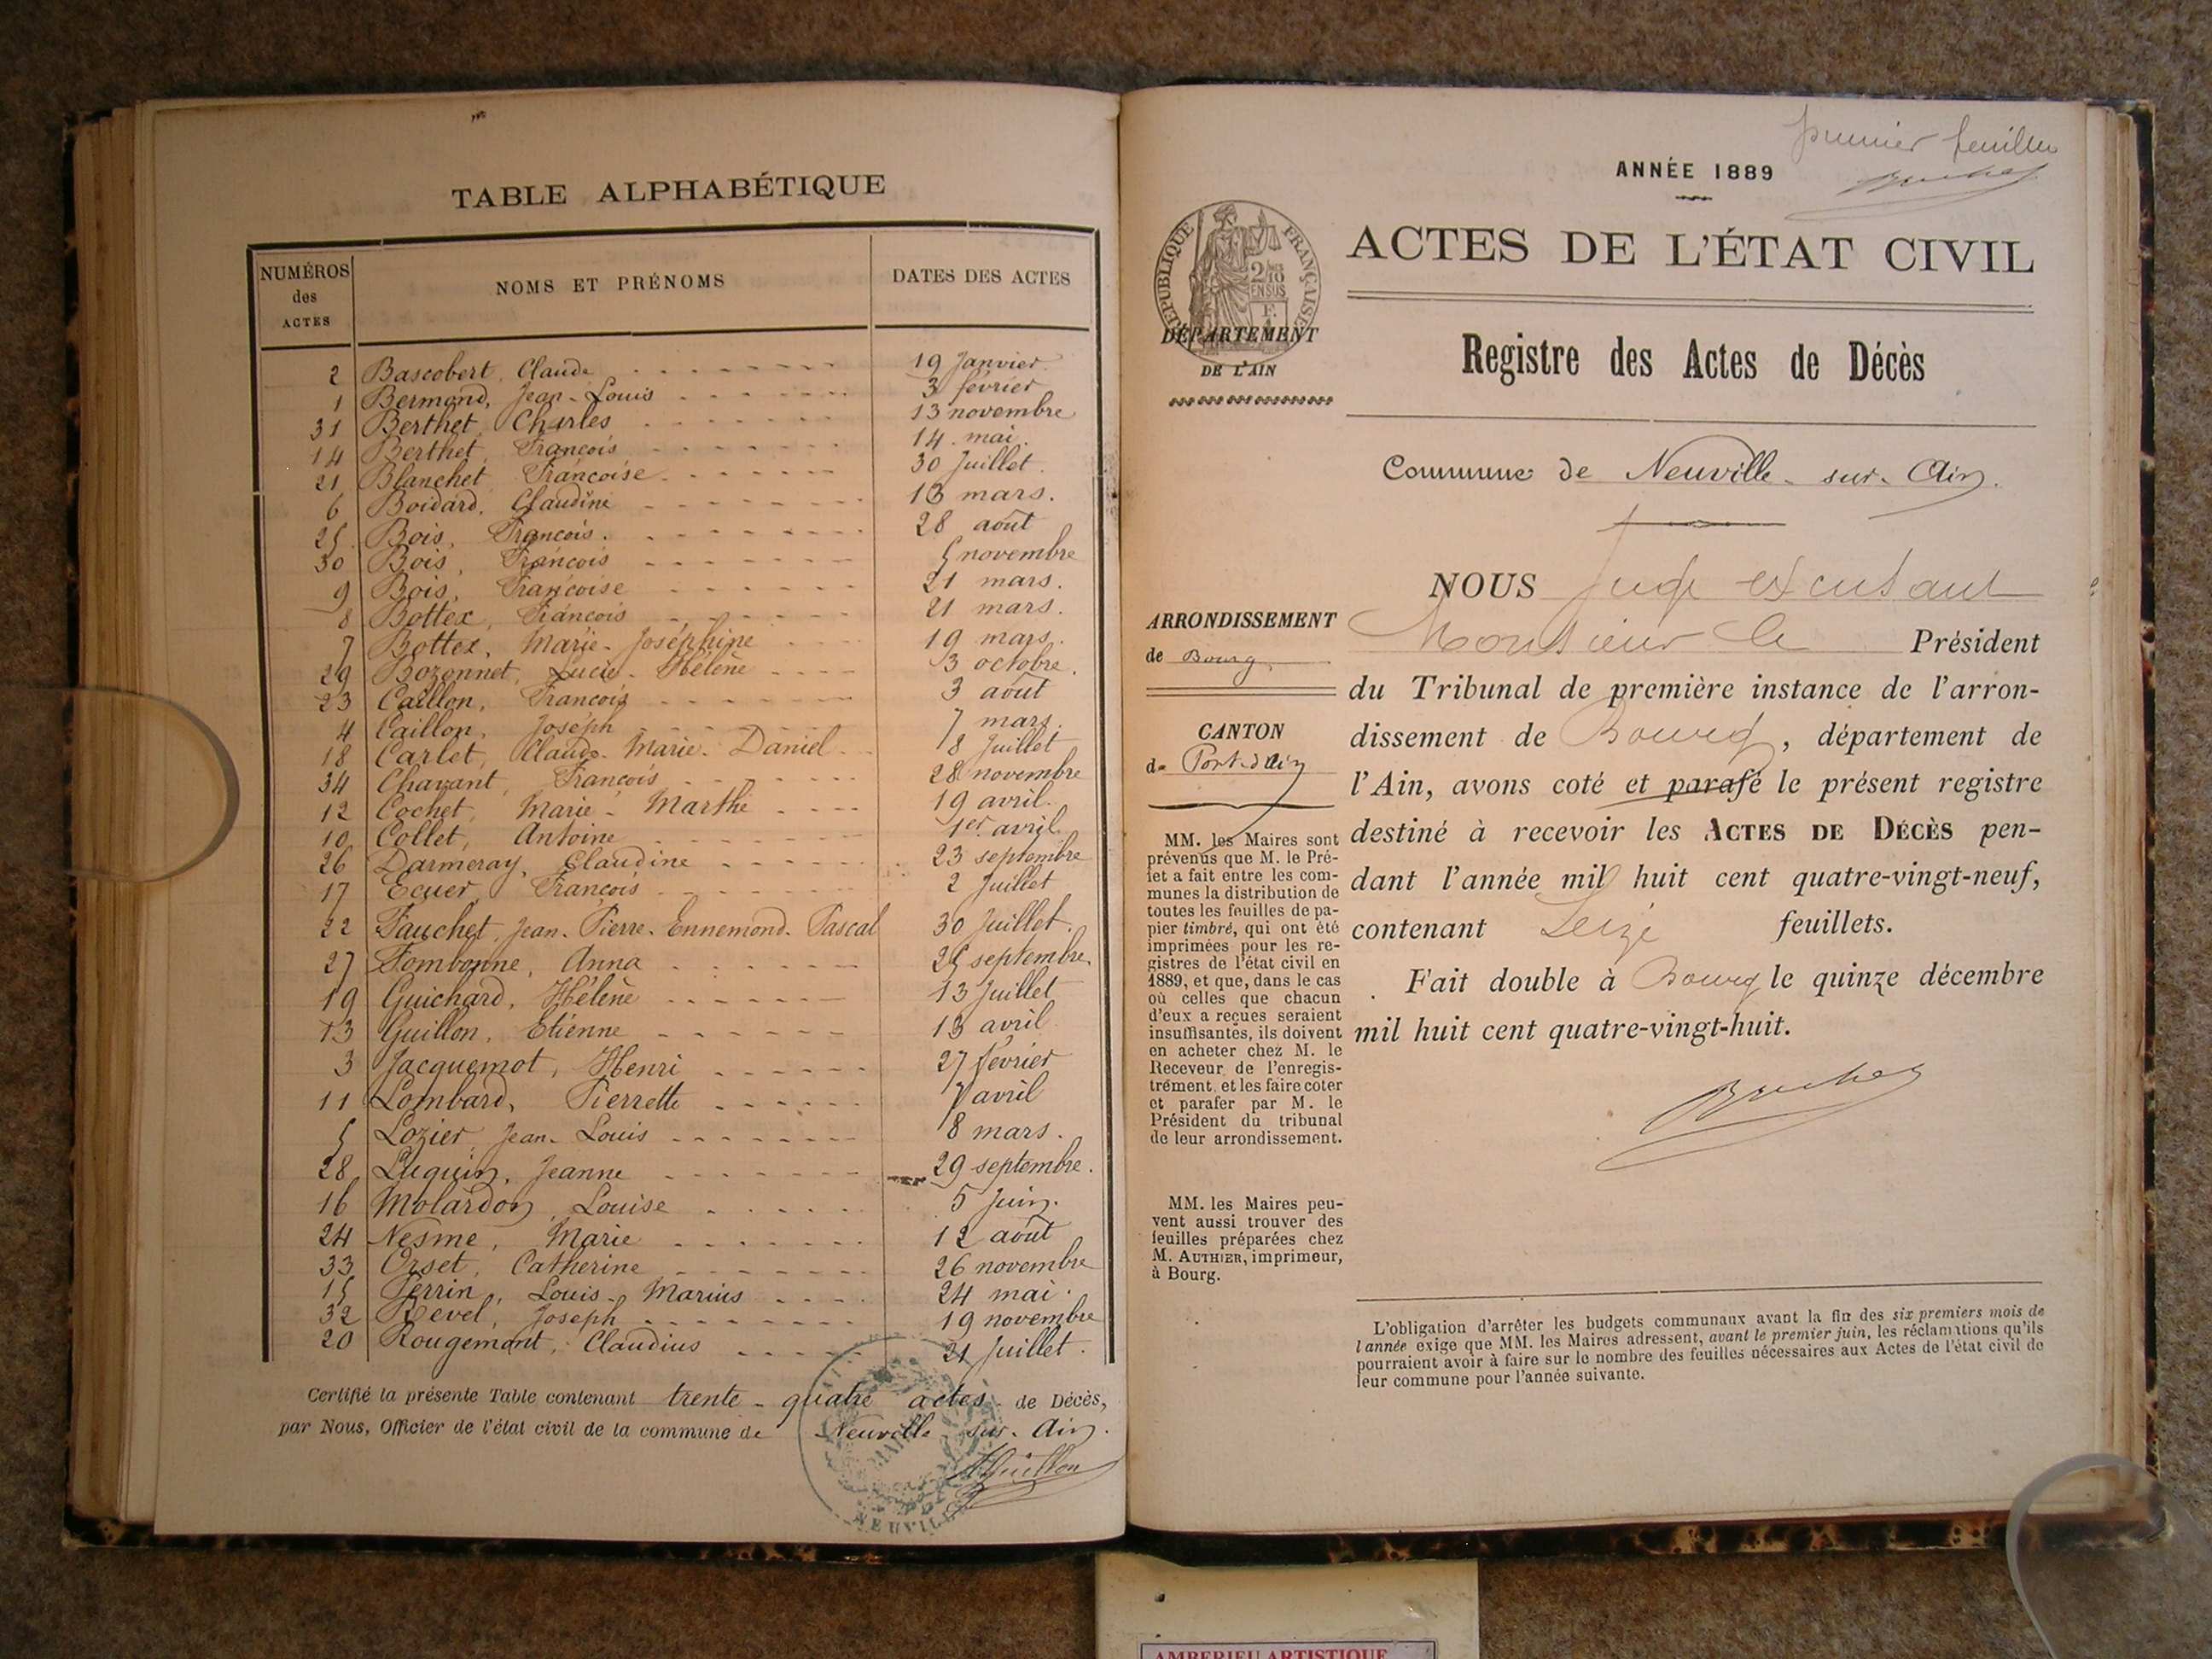 TABLE ALPHABÉTIQUE
NUMÉROS des ACTES NOMS ET PRÉNOMS DATES DES ACTES
2 Bascobert, Claude 19 Janvier
1 Bermond, Jean-Louis 3 février
31 Berthet, Charles 13 novembre
14 Berthet, François 14 mai.
21 Blanchet Françoise 30 Juillet.
6 Boidard, Claudine 13 mars.
25 Bois, François. 28 août
30 Bois, François 5 novembre
9 Bois, Françoise 21 mars.
8 Bottex, François 21 mars.
7 Bottex, Marie-Joséphine 19 mars.
29 Bozonnet, Lucie-Hélène 3 octobre.
23 Caillon, François 3 août
4 Caillon, Joseph 7 mars.
18 Carlet, Claude-Marie-Daniel 8 Juillet
34 Chavant, François 28 novembre
12 Cochet, Marie-Marthe 19 avril.
10 Collet, Antoine 1er avril.
26 Darmeray, Claudine 23 septembre
17 Ecuer, François 2 Juillet
22 Fauchet, Jean-Pierre-Ennemond-Pascal 30 Juillet.
27 Fombonne, Anna 25 septembre.
19 Guichard, Hélène 13 Juillet
13 Guillon, Etienne 13 avril
3 Jacquemot, Henri 27 février
11 Lombard, Pierrette 7 avril
5 Lozier, Jean-Louis 8 mars.
28 Luquin, Jeanne 29 septembre.
16 Molardon, Louise 5 Juin.
24 Nesme, Marie 12 août
33 Orset, Catherine 26 novembre
15 Perrin, Louis-Marius 24 mai.
32 Revel, Joseph 19 novembre
20 Rougemont, Claudius 21 Juillet.
Certifié la présente Table contenant trente-quatre actes de Décès,
par Nous, Officier de l'état civil de la commune de Neuville-sur-Ain.
Guillon
MAIRIE
NEUVILLE
premier feuillet
ANNÉE 1889
Bruchet
RÉPUBLIQUE FRANÇAISE
2/10 EN SUS
DÉPARTEMENT
DE L'AIN
ACTES DE L'ÉTAT CIVIL
Registre des Actes de Décès
Commune de Neuville-sur-Ain.
ARRONDISSEMENT
de Bourg
CANTON
de Pont-d'Ain
MM. les Maires sont
prévenus que M. le Pré-
fet a fait entre les com-
munes la distribution de
toutes les feuilles de pa-
pier timbré, qui ont été
imprimées pour les re-
gistres de l'état civil en
1889, et que, dans le cas
où celles que chacun
d'eux a reçues seraient
insuffisantes, ils doivent
en acheter chez M. le
Receveur de l'enregis-
trement, et les faire coter
et parafer par M. le
Président du tribunal
de leur arrondissement.
MM. les Maires peu-
vent aussi trouver des
feuilles préparées chez
M. AUTHIER, imprimeur,
à Bourg.
NOUS Juge
Monsieur le Président
du Tribunal de première instance de l'arron-
dissement de Bourg, département de
l'Ain, avons coté et parafé le présent registre
destiné à recevoir les ACTES DE DÉCÈS pen-
dant l'année mil huit cent quatre-vingt-neuf,
contenant Seize feuillets.
Fait double à Bourg le quinze décembre
mil huit cent quatre-vingt-huit.
Bruchet
L'obligation d'arrêter les budgets communaux avant la fin des six premiers mois de
l'année exige que MM. les Maires adressent, avant le premier juin, les réclamations qu'ils
pourraient avoir à faire sur le nombre des feuilles nécessaires aux Actes de l'état civil de
leur commune pour l'année suivante.
AMBERIEU ARTISTIQUE